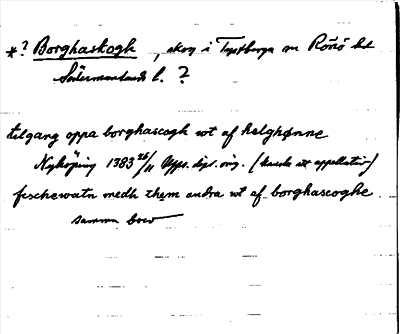 *? Borghaskogh, skog i Tystberga sn Rönö hd
Södermanlands l. ?
tilgang oppa borghascogh wt af helghønne
Nyköping 1383 26/11 Upps. dipl. orig. (kanske ett appellativ)
fischewatn medh them andra wt af borghascoghe.
samma brev